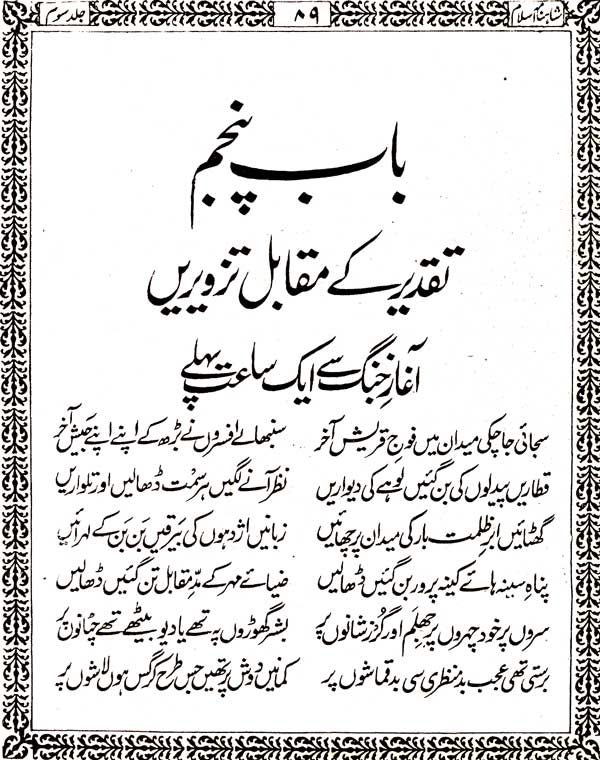 شاہنامۂ اسلام ۸۹ جلد سوم
باب پنجم
تقدیر کے مقابل تزویریں
آغازِ جنگ سے ایک ساعت پہلے
سجائی جا چکی میدان میں فوجِ قریش آخر سنبھالے افسروں نے بڑھ کے اپنے اپنے جیش آخر
قطاریں پیدلوں کی بن گئیں لوہے کی دیواریں نظر آنے لگیں ہر سمت ڈھالیں اور تلواریں
گھٹائیں ابرِ ظلمت بار کی میدان پر چھائیں زبانیں اژدہوں کی بیرقیں بن بن کے لہرائیں
پناہِ سینہ ہائے کینہ پرور بن گئیں ڈھالیں ضیائے مہر کے مدِّ مقابل تن گئیں ڈھالیں
سروں پر خود چہروں پر جھلم اور گرز شانوں پر بشر گھوڑوں پہ تھے یا دیو بیٹھے تھے چٹانوں پر
برستی تھی عجب بدمنظری سی بدقماشوں پر کمانیں دوش پر تھیں جس طرح کرگس ہوں لاشوں پر